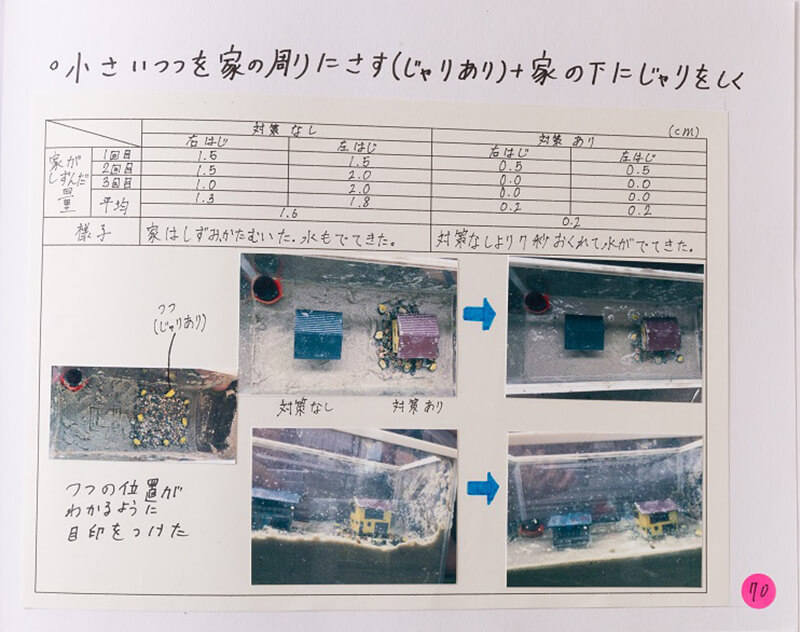 ○小さいつつを家の周りにさす(じゃりあり)+家の下にじゃりをしく
(cm)
対策なし 対策あり
右はじ 左はじ 右はじ 左はじ
家がしずんだ量
1回目 1.5 1.5 0.5 0.5
2回目 1.5 2.0 0.0 0.0
3回目 1.0 2.0 0.0 0.0
平均 1.3 1.8 0.2 0.2
1.6 0.2
様子 家はしずおかたむいた。水もでてきた。 対策なしより7秒おくれて水がでてきた。
つつ
(じゃりあり)
対策なし 対策あり
つつの位置が
わかるように
目印をつけた
70